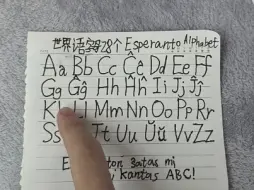 世界语字母28个 Esperanto Alphabet
Aa Bb Cc Ĉĉ Dd Ee Ff
Gg Ĝĝ Hh Ĥĥ Ii Jj Ĵĵ
Ll Mm Nn Oo Pp Rr
Ss Tt Uu Ŭŭ Vv Zz
mi
kantas ABC!